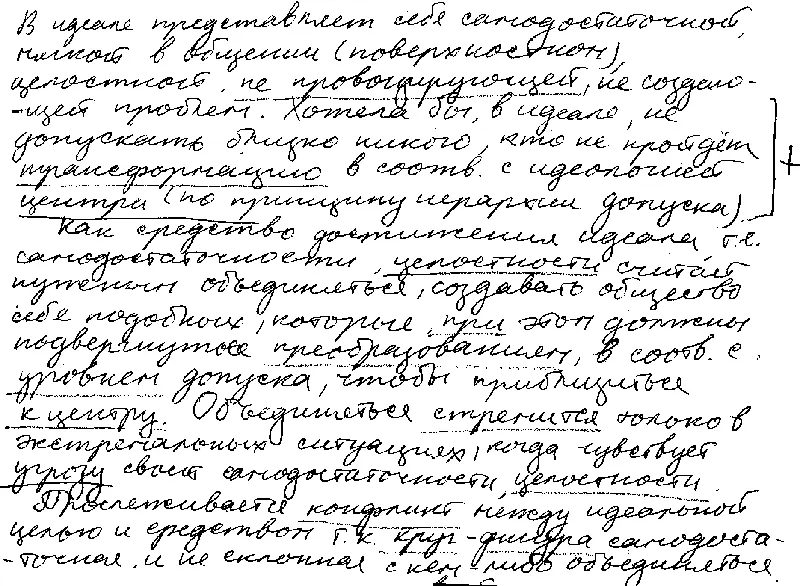 В идеале представляет себя самодостаточной,
мягкой в общении (поверхностном),
целостной, не провоцирующей, не создаю-
-щей проблем. Хотела бы, в идеале, не
допускать близко никого, кто не пройдёт
трансформацию в соотв. с идеологией
центра (по принципу иерархии допуска)
+
Как средство достижения идеала т.е.
самодостаточности, целостности считает
нужным объединяться, создавать общество
себе подобных, которые, при этом должны
подвергнуться преобразованиям, в соотв. с
уровнем допуска, чтобы приблизиться
к центру. Объединяться стремится только в
экстремальных ситуациях, когда чувствует
угрозу своей самодостаточности, целостности.
Прослеживается конфликт между идеальной
целью и средством т.к. круг-фигура самодоста-
-точная и не склонная с кем-либо объединяться.